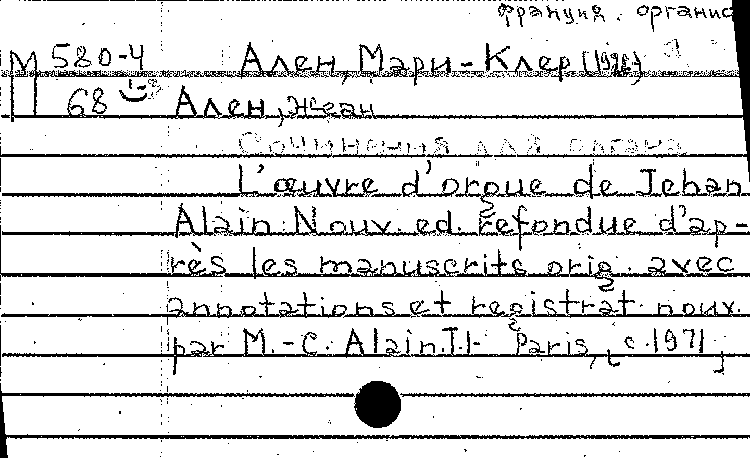 франция. органис
М 580-4 Ален, Мари-Клер (1926)
68 1-3 Ален, Жеан
Сочинения для органа
L'œuvre d'orgue de Jehan
Alain. Nouv. ed. refondue d'ap-
rès les manuscrits orig. avec
annotations et registrat. nouv.
par M.-C. Alain. T.1- Paris, [c. 1971]